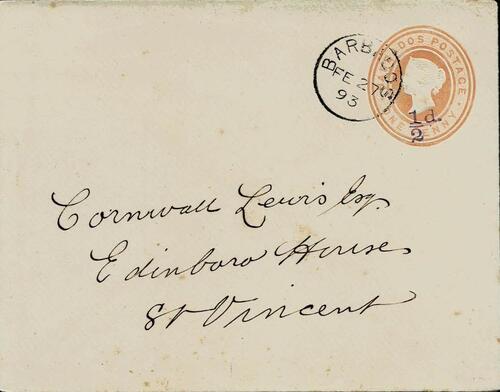 BARBADOS
FE 27
93
BARBADOS POSTAGE
ONE PENNY
1/2 d.
Cornwall Lewis Esq.
Edinboro House
St Vincent